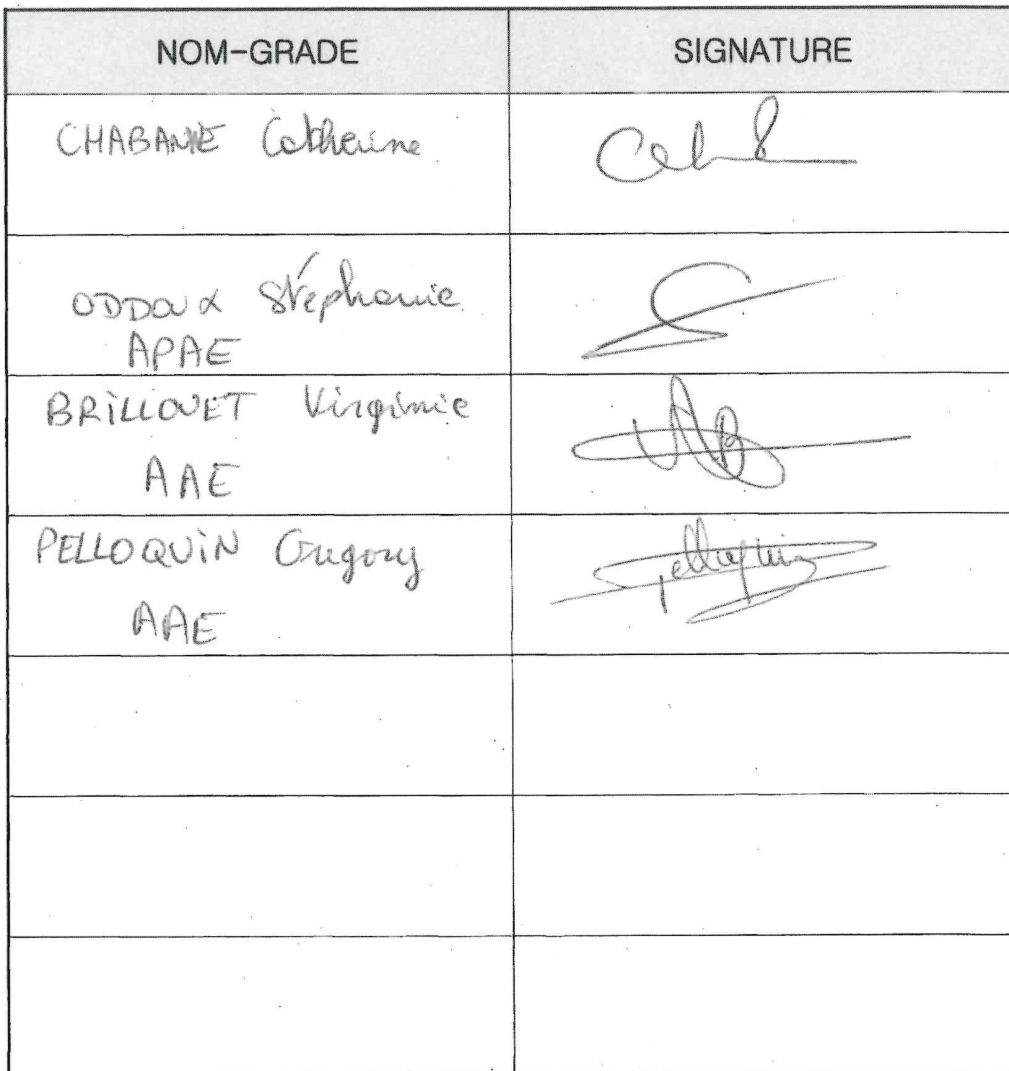 NOM-GRADE SIGNATURE
CHABANNE Catherine
ODDOUX Stéphanie
APAE
BRILLOUET Virginie
AAE
PELLOQUIN Gregory
AAE
Pelloquin